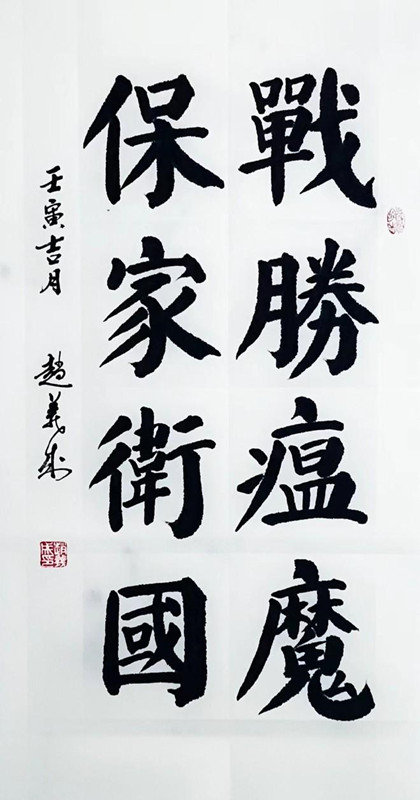 戰勝瘟魔
保家衛國
壬寅吉月 趙義成